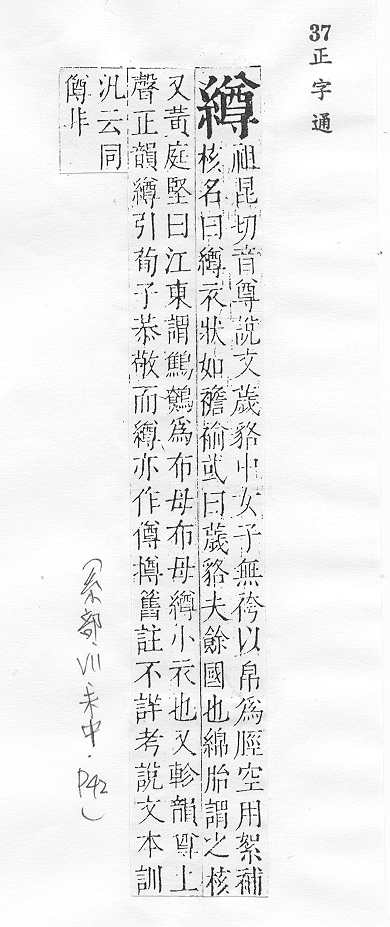 37正字通
繜
祖昆切音尊說文薉貉中女子無袴以帛爲脛空用絮補
核名曰繜衣狀如襜褕或曰薉貉夫餘國也綿胎謂之核
又黃庭堅曰江東謂鷦鷯爲布母布母繜小衣也又軫韻尊上
聲正韻繜引荀子恭敬而繜亦作僔撙舊註不詳考說文本訓
汎云同
僔非
(糸部·VII·未中·P42)